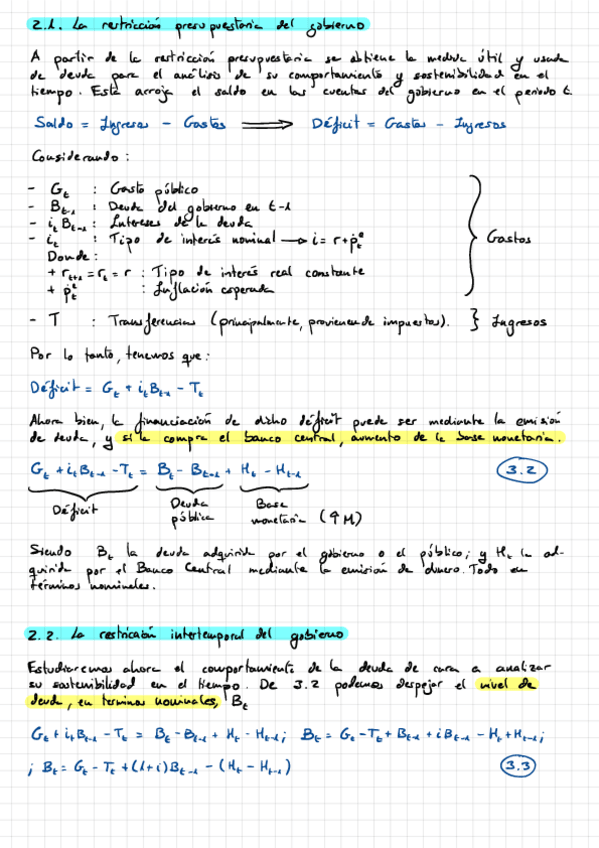 2.1. La restricción presupuestaria del gobierno
A partir de la restricción presupuestaria se obtiene la medida útil y usada
de deuda para el análisis de su comportamiento y sostenibilidad en el
tiempo. Esta arroja el saldo en las cuentas del gobierno en el periodo t.
Saldo = Ingresos - Gastos ⟹ Déficit = Gastos - Ingresos
Considerando:
- G_t : Gasto público
- B_{t-1} : Deuda del gobierno en t-1
- i_t B_{t-1} : Intereses de la deuda
- i_t : Tipo de interés nominal → i = r + ṗ_t^e
Donde:
+ r_{t+1} = r_t = r : Tipo de interés real constante
+ ṗ_t^e : Inflación esperada
} Gastos
- T : Transferencias (principalmente, proviene de impuestos). } Ingresos
Por lo tanto, tenemos que:
Déficit = G_t + i_t B_{t-1} - T_t
Ahora bien, la financiación de dicho déficit puede ser mediante la emisión
de deuda, y si la compra el banco central, aumento de la base monetaria.
G_t + i_t B_{t-1} - T_t = B_t - B_{t-1} + H_t - H_{t-1} 3.2
Déficit Deuda pública Base monetaria (↑M)
Siendo B_t la deuda adquirida por el gobierno o el público; y H_t la ad-
quirida por el Banco Central mediante la emisión de dinero. Todo en
términos nominales.
2.2. La restricción intertemporal del gobierno
Estudiaremos ahora el comportamiento de la deuda de cara a analizar
su sostenibilidad en el tiempo. De 3.2 podemos despejar el nivel de
deuda, en terminos nominales, B_t
G_t + i_t B_{t-1} - T_t = B_t - B_{t-1} + H_t - H_{t-1}; B_t = G_t - T_t + B_{t-1} + i B_{t-1} - H_t + H_{t-1};
; B_t = G_t - T_t + (1+i) B_{t-1} - (H_t - H_{t-1}) 3.3